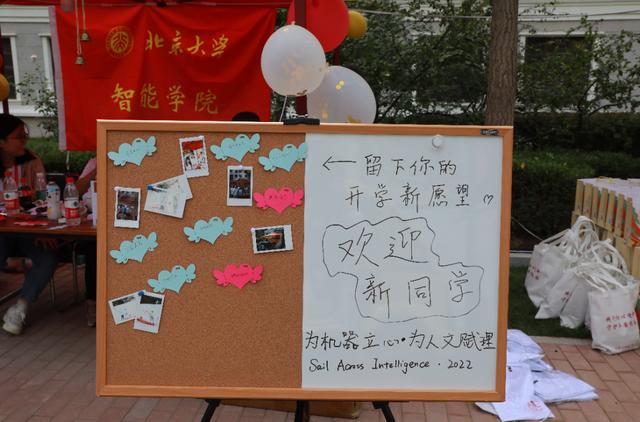 北京大学
智能学院
← 留下你的
开学新愿望♡
欢迎
新同学
为机器立心·为人文赋理
Sail Across Intelligence · 2022